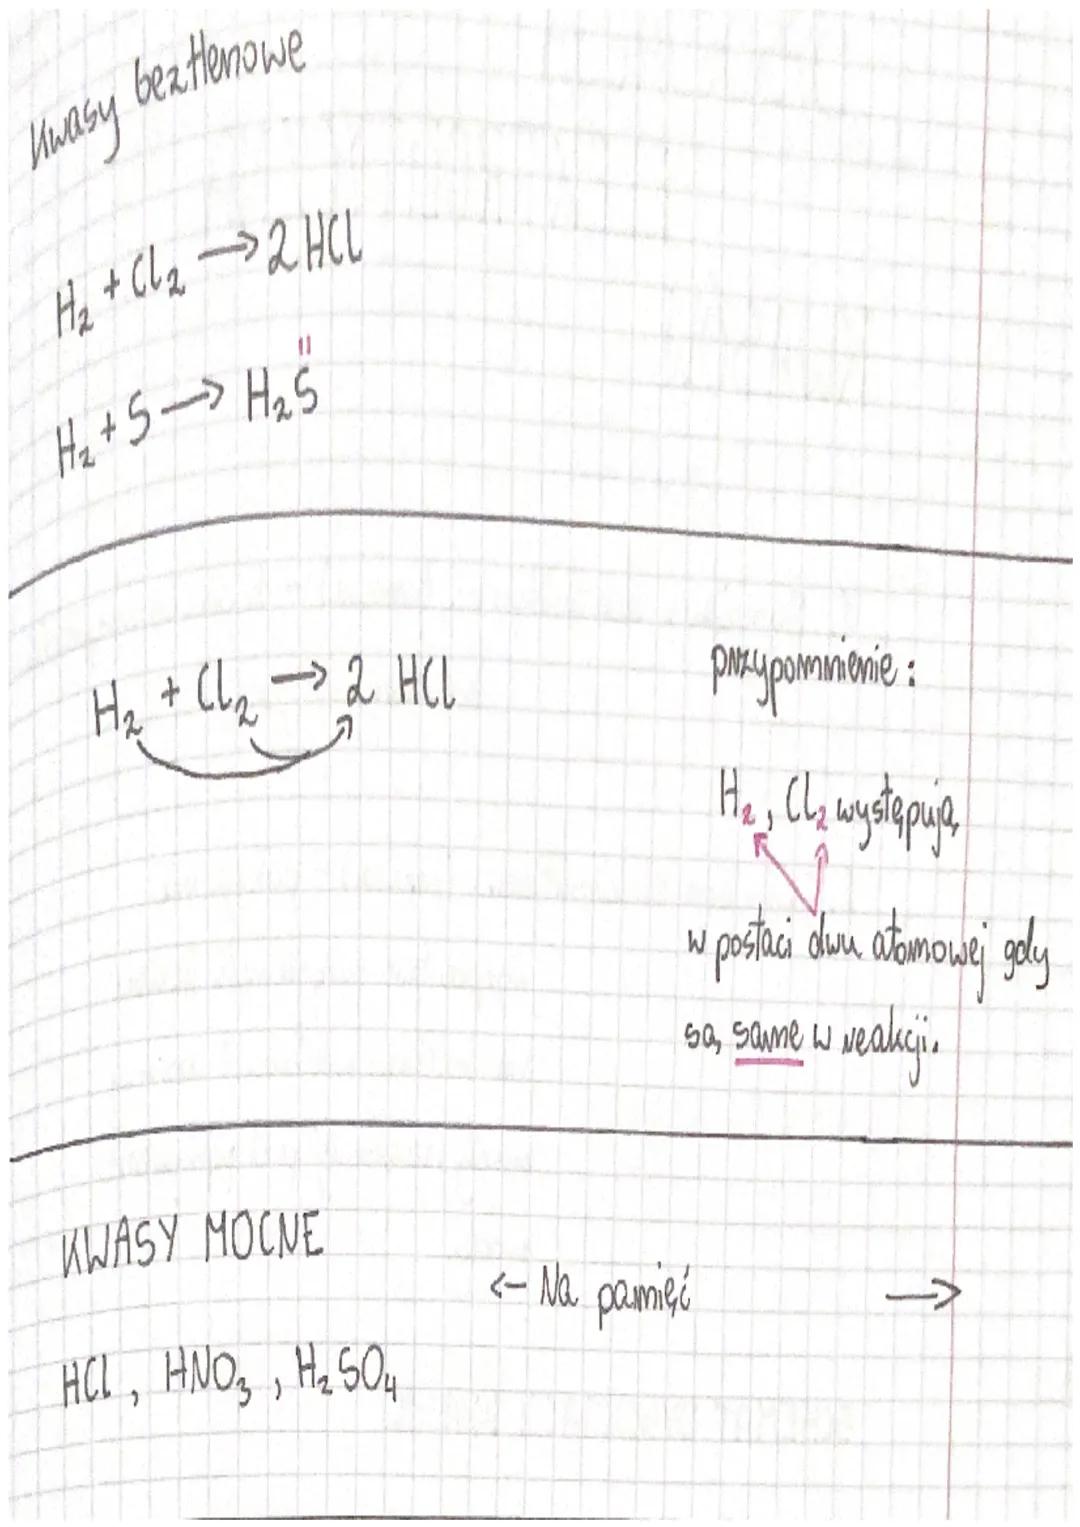 Kwasy beztlenowe
H₂ + Cl₂ → 2 HCl
II
H₂ + S → H₂S
H₂ + Cl₂ → 2 HCl
przypomnienie:
H₂, Cl₂ występują
w postaci dwu atomowej gdy
są same w reakcji.
KWASY MOCNE
← Na pamięć →
HCl, HNO₃, H₂SO₄